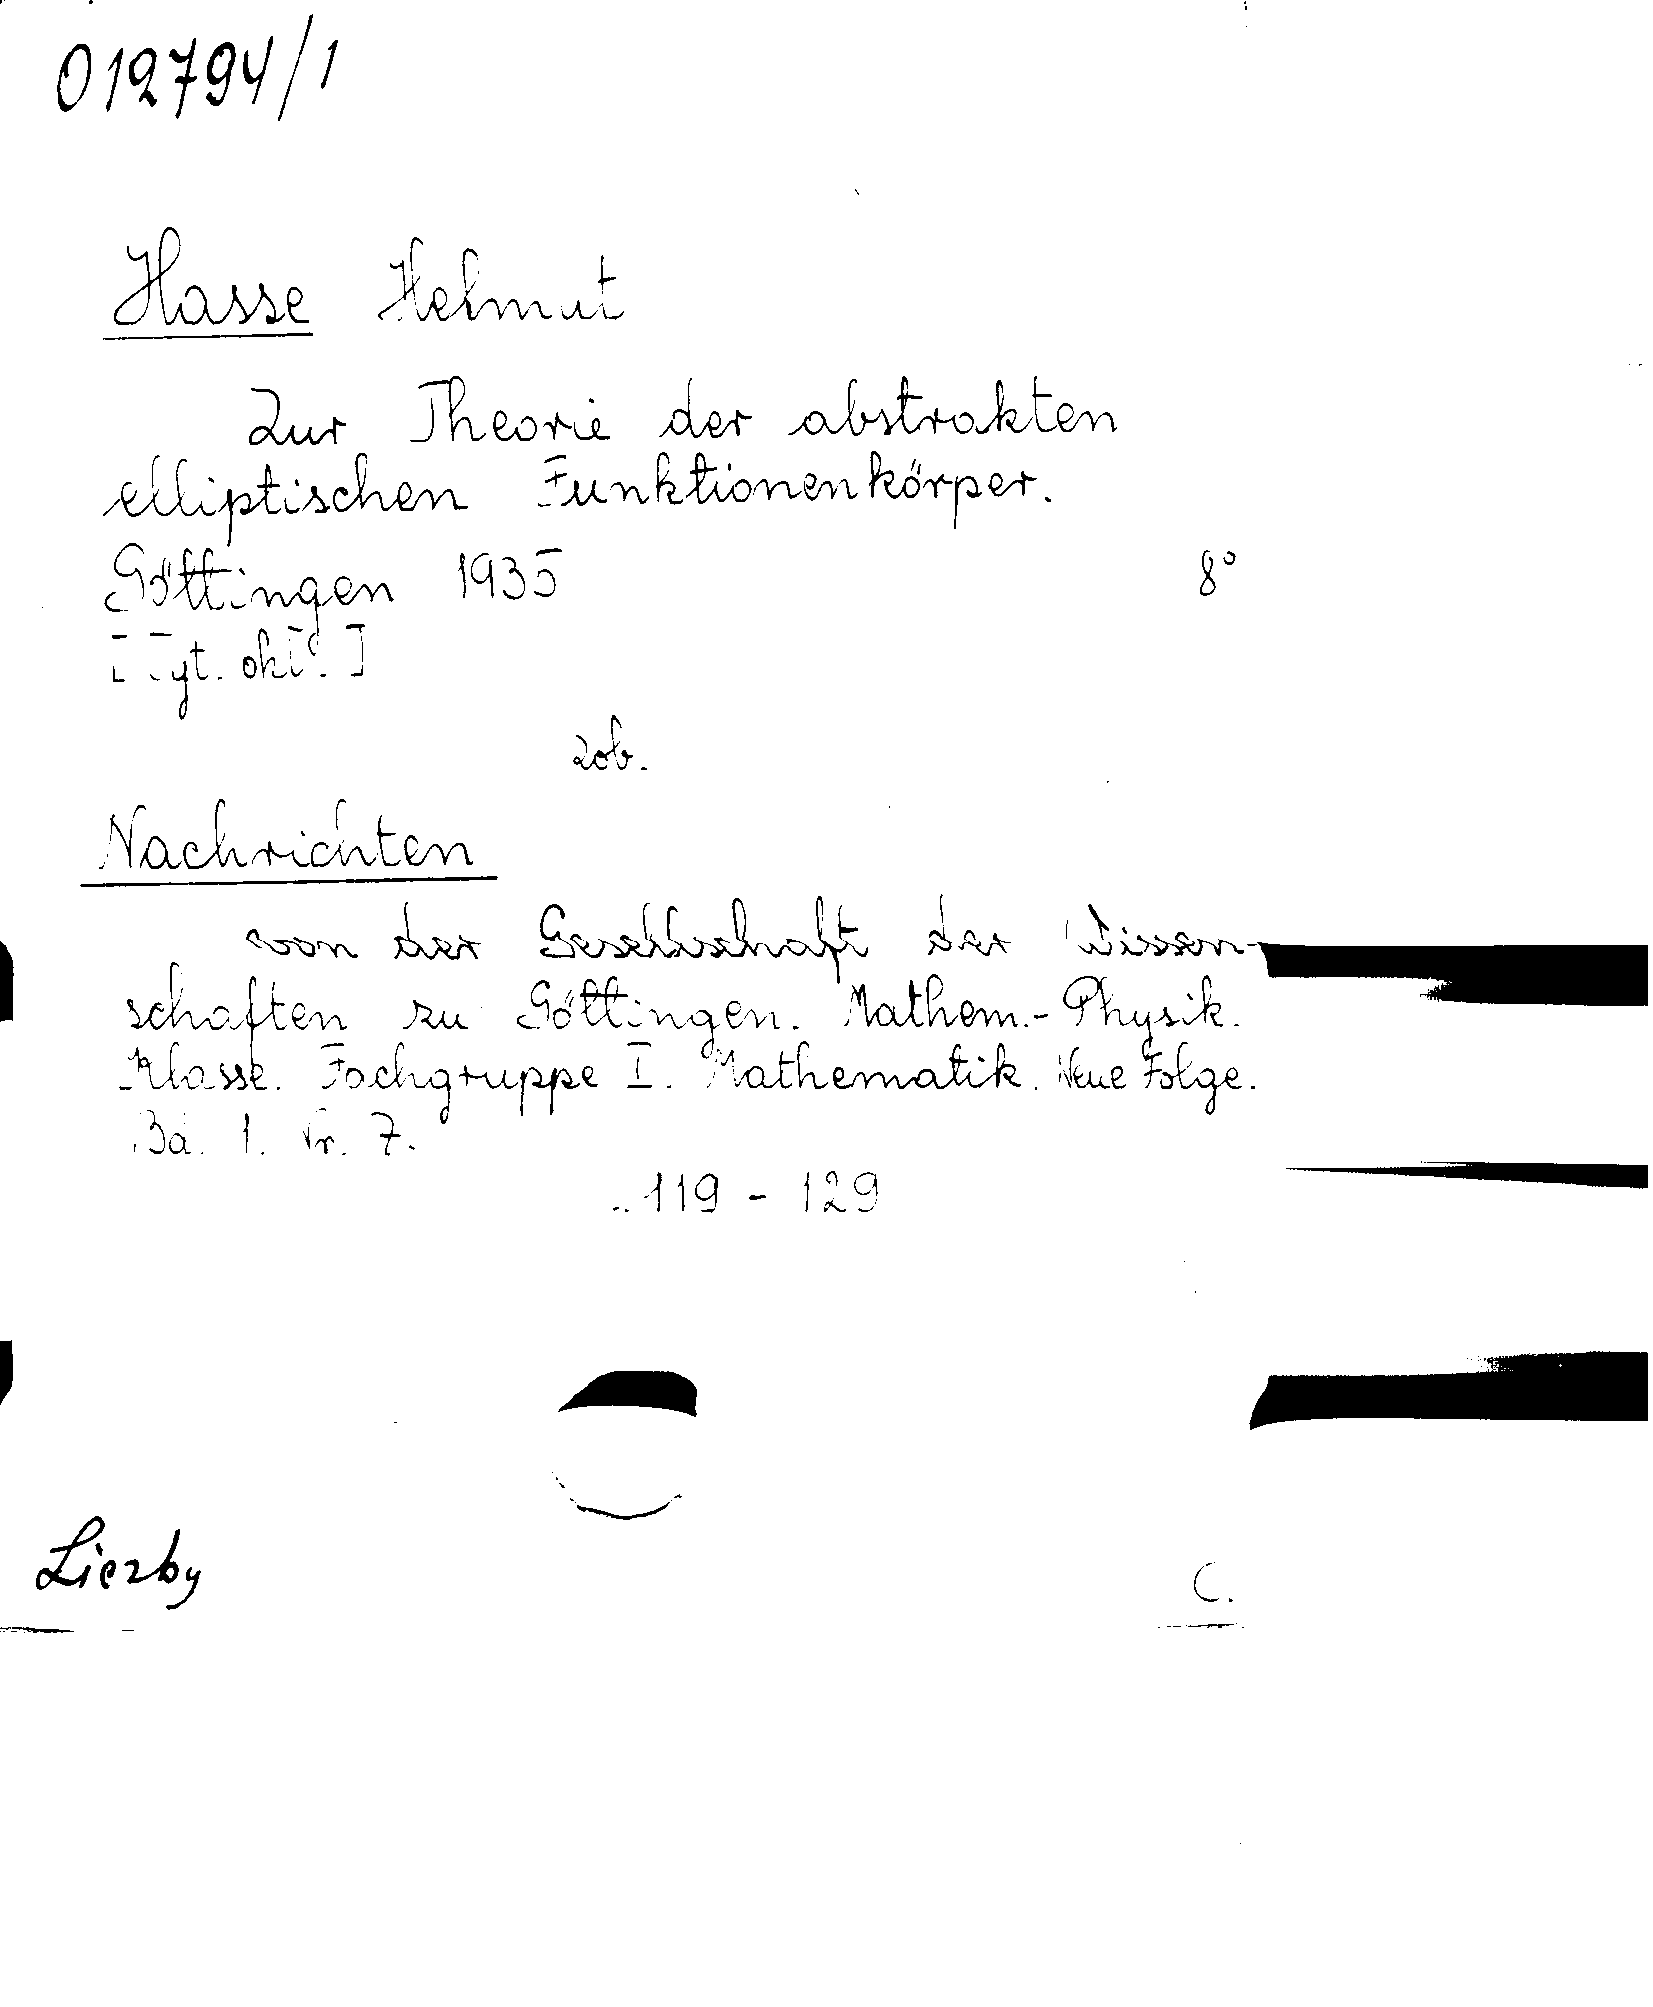 012794/1
Hasse Helmut
Zur Theorie der abstrakten
elliptischen Funktionenkörper.
Göttingen 1935 8°
[Tyt. okł.]
zob.
Nachrichten
von der Gesellschaft der Wissen-
schaften zu Göttingen. Mathem.-Physik.
Klasse. Fachgruppe I. Mathematik. Neue Folge.
Bd. 1. Nr. 7.
119 - 129
Liczby
C.